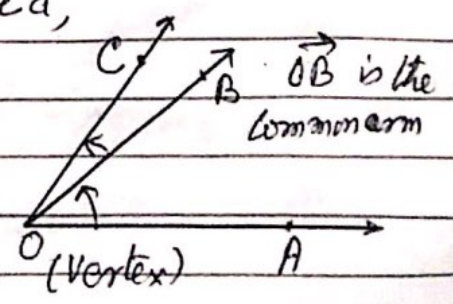 ea,
C
B
OB is the
common arm
O
(Vertex)
A